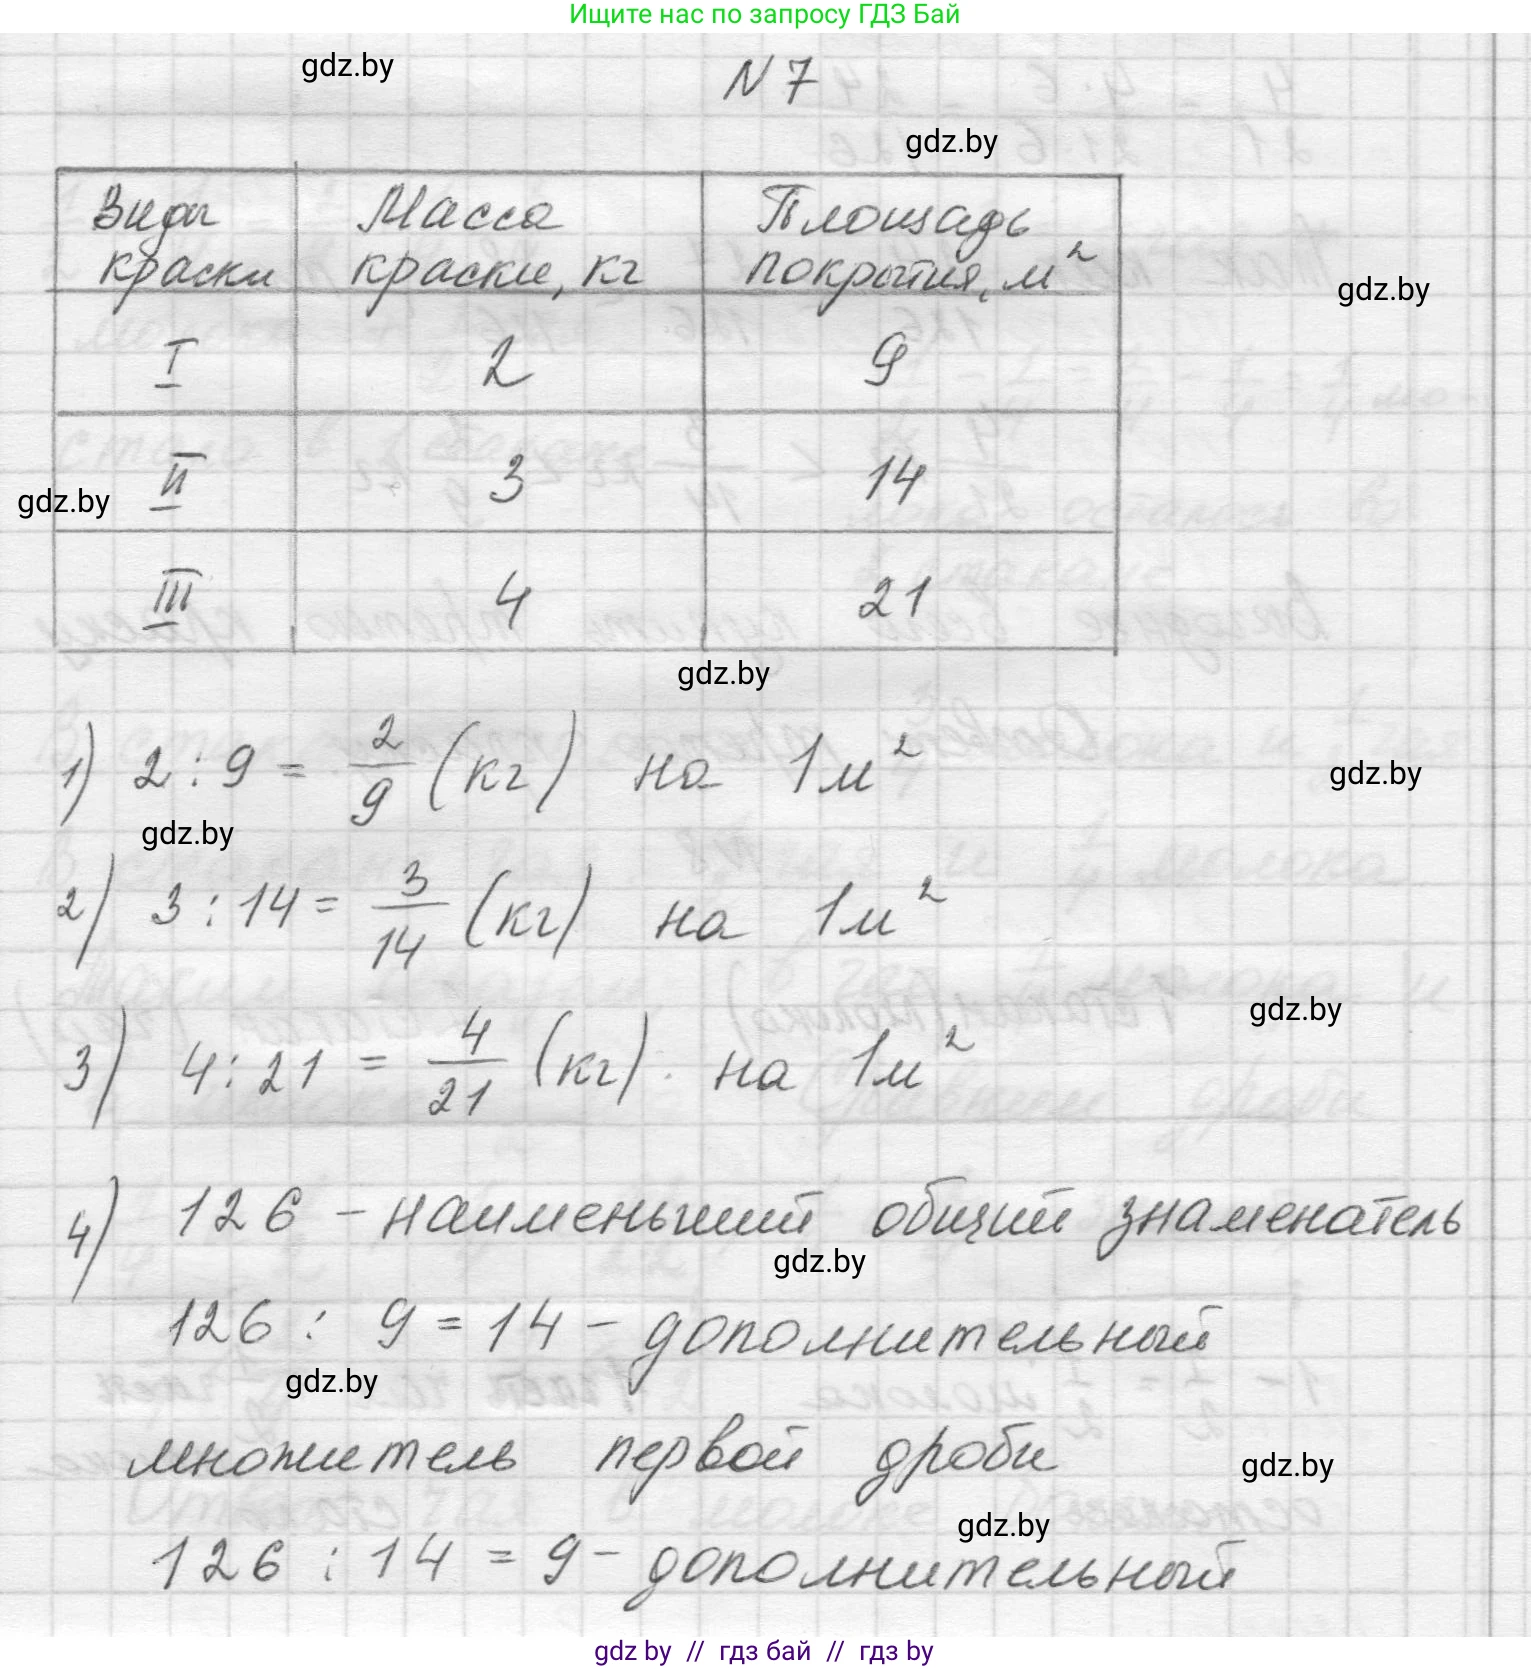 Ищите нас по запросу ГДЗ Бай
gdz.by
N 7
gdz.by
Виды краски
Масса краски, кг
Площадь покрытия, м²
gdz.by
I 2 9
II 3 14
gdz.by
III 4 21
gdz.by
1) 2 : 9 = 2/9 (кг) на 1м²
gdz.by
gdz.by
2) 3 : 14 = 3/14 (кг) на 1м²
gdz.by
3) 4 : 21 = 4/21 (кг) на 1м²
4) 126 – наименьший общий знаменатель
gdz.by
126 : 9 = 14 – дополнительный
gdz.by
множитель первой дроби
gdz.by
gdz.by
126 : 14 = 9 – дополнительный
gdz by // гдз бай // гдз by